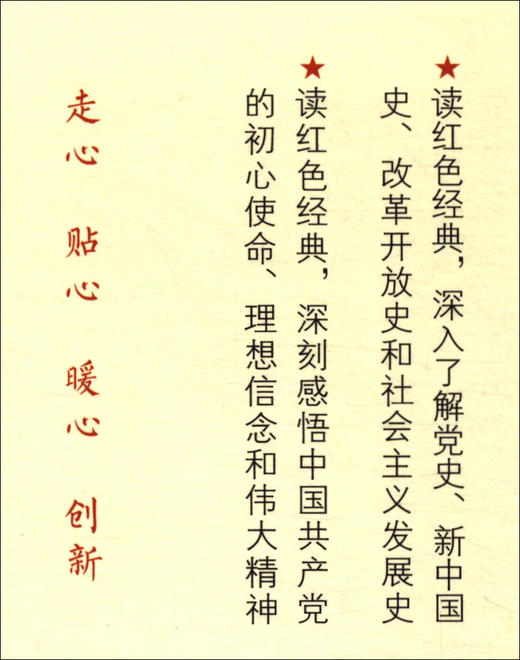 ★读红色经典，深入了解党史、新中国
史、改革开放史和社会主义发展史
★读红色经典，深刻感悟中国共产党
的初心使命、理想信念和伟大精神
走心 贴心 暖心 创新